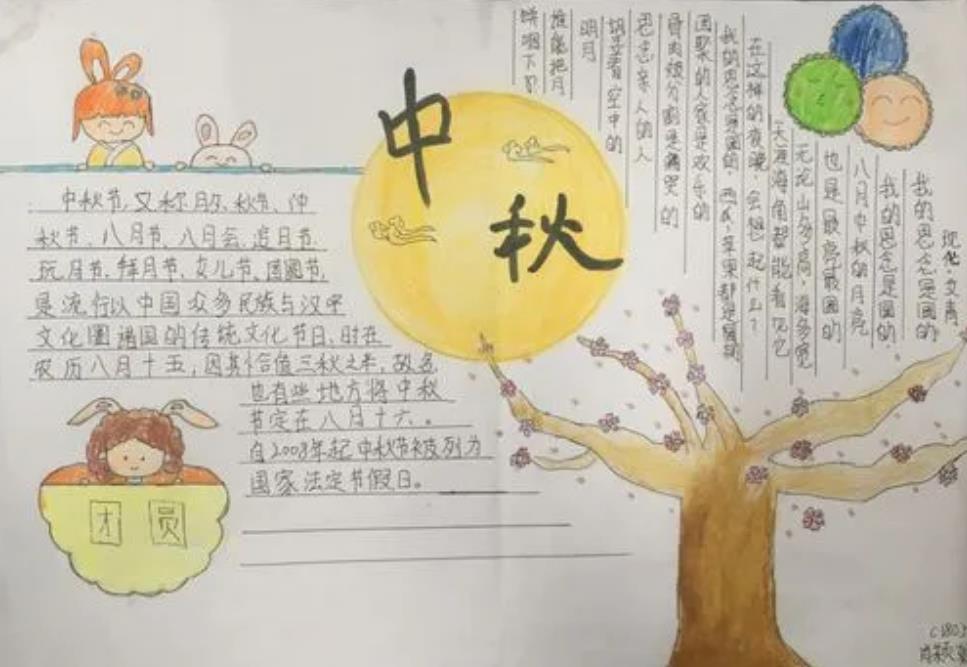 中秋
中秋节,又称月夕、秋节、仲
秋节、八月节、八月会、追月节、
玩月节、拜月节、女儿节、团圆节,
是流行以中国众多民族与汉字
文化圈诸国的传统文化节日,时在
农历八月十五,因其恰值三秋之半,故名
也有些地方将中秋
节定在八月十六。
自2008年起中秋节被列为
国家法定节假日。
团 圆
现代·文青
我的思念是圆的
我的思念是圆的
八月中秋的月亮
也是最亮最圆的
无论山多高,海多宽
天涯海角都能看见它
在这样的夜晚,会想起什么?
我的思念是圆的,西瓜,苹果都是圆的
团聚的人家是欢乐的
骨肉被分割是痛苦的
思念亲人的人
望着空中的
明月
谁能把月
饼咽下